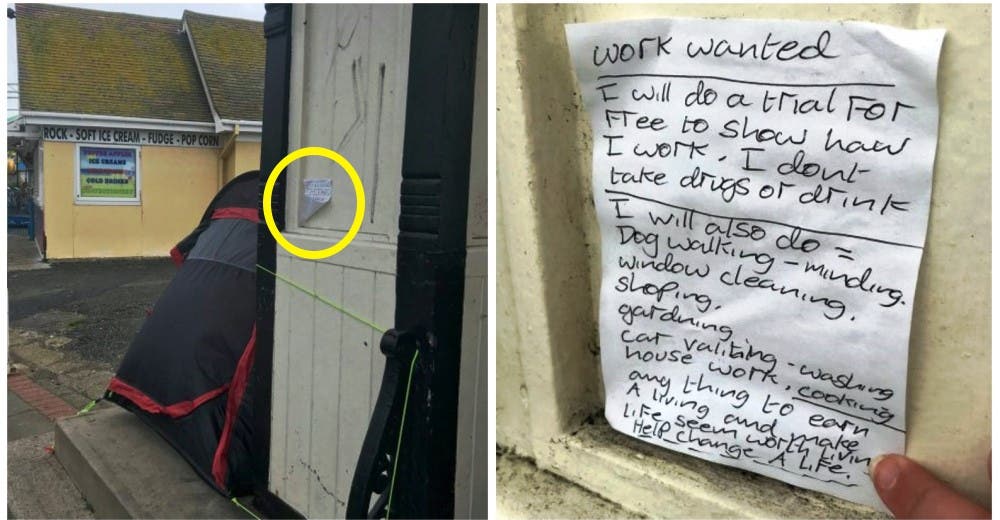 ROCK - SOFT ICE CREAM - FUDGE - POP CORN
TOFFEE APPLES
ICE CREAMS
COLD DRINKS
work wanted
I will do a trial FOR
Free to show how
I work. I dont
take drugs or drink
I will also do =
Dog walking - minding.
window cleaning.
shoping.
gardning
car valiting - washing
house work, cooking
any thing to earn
A living and make
Life seem worth living
Help change A Life.